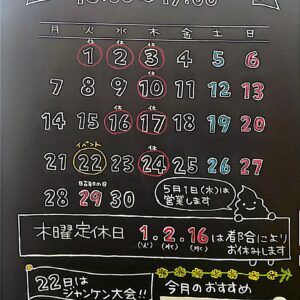 月 火 水 木 金 土 日
休 休 休
1 2 3 4 5 6
休
7 8 9 10 11 12 13
休 休
14 15 16 17 18 19 20
イベント 休
21 22 23 24 25 26 27
昭和の日
28 29 30
5月1日(水)は
営業します
木曜定休日 1.2.16は都合により
(火) (水) (火) お休みします
22日は
ジャンケン大会!!
今月のおすすめ